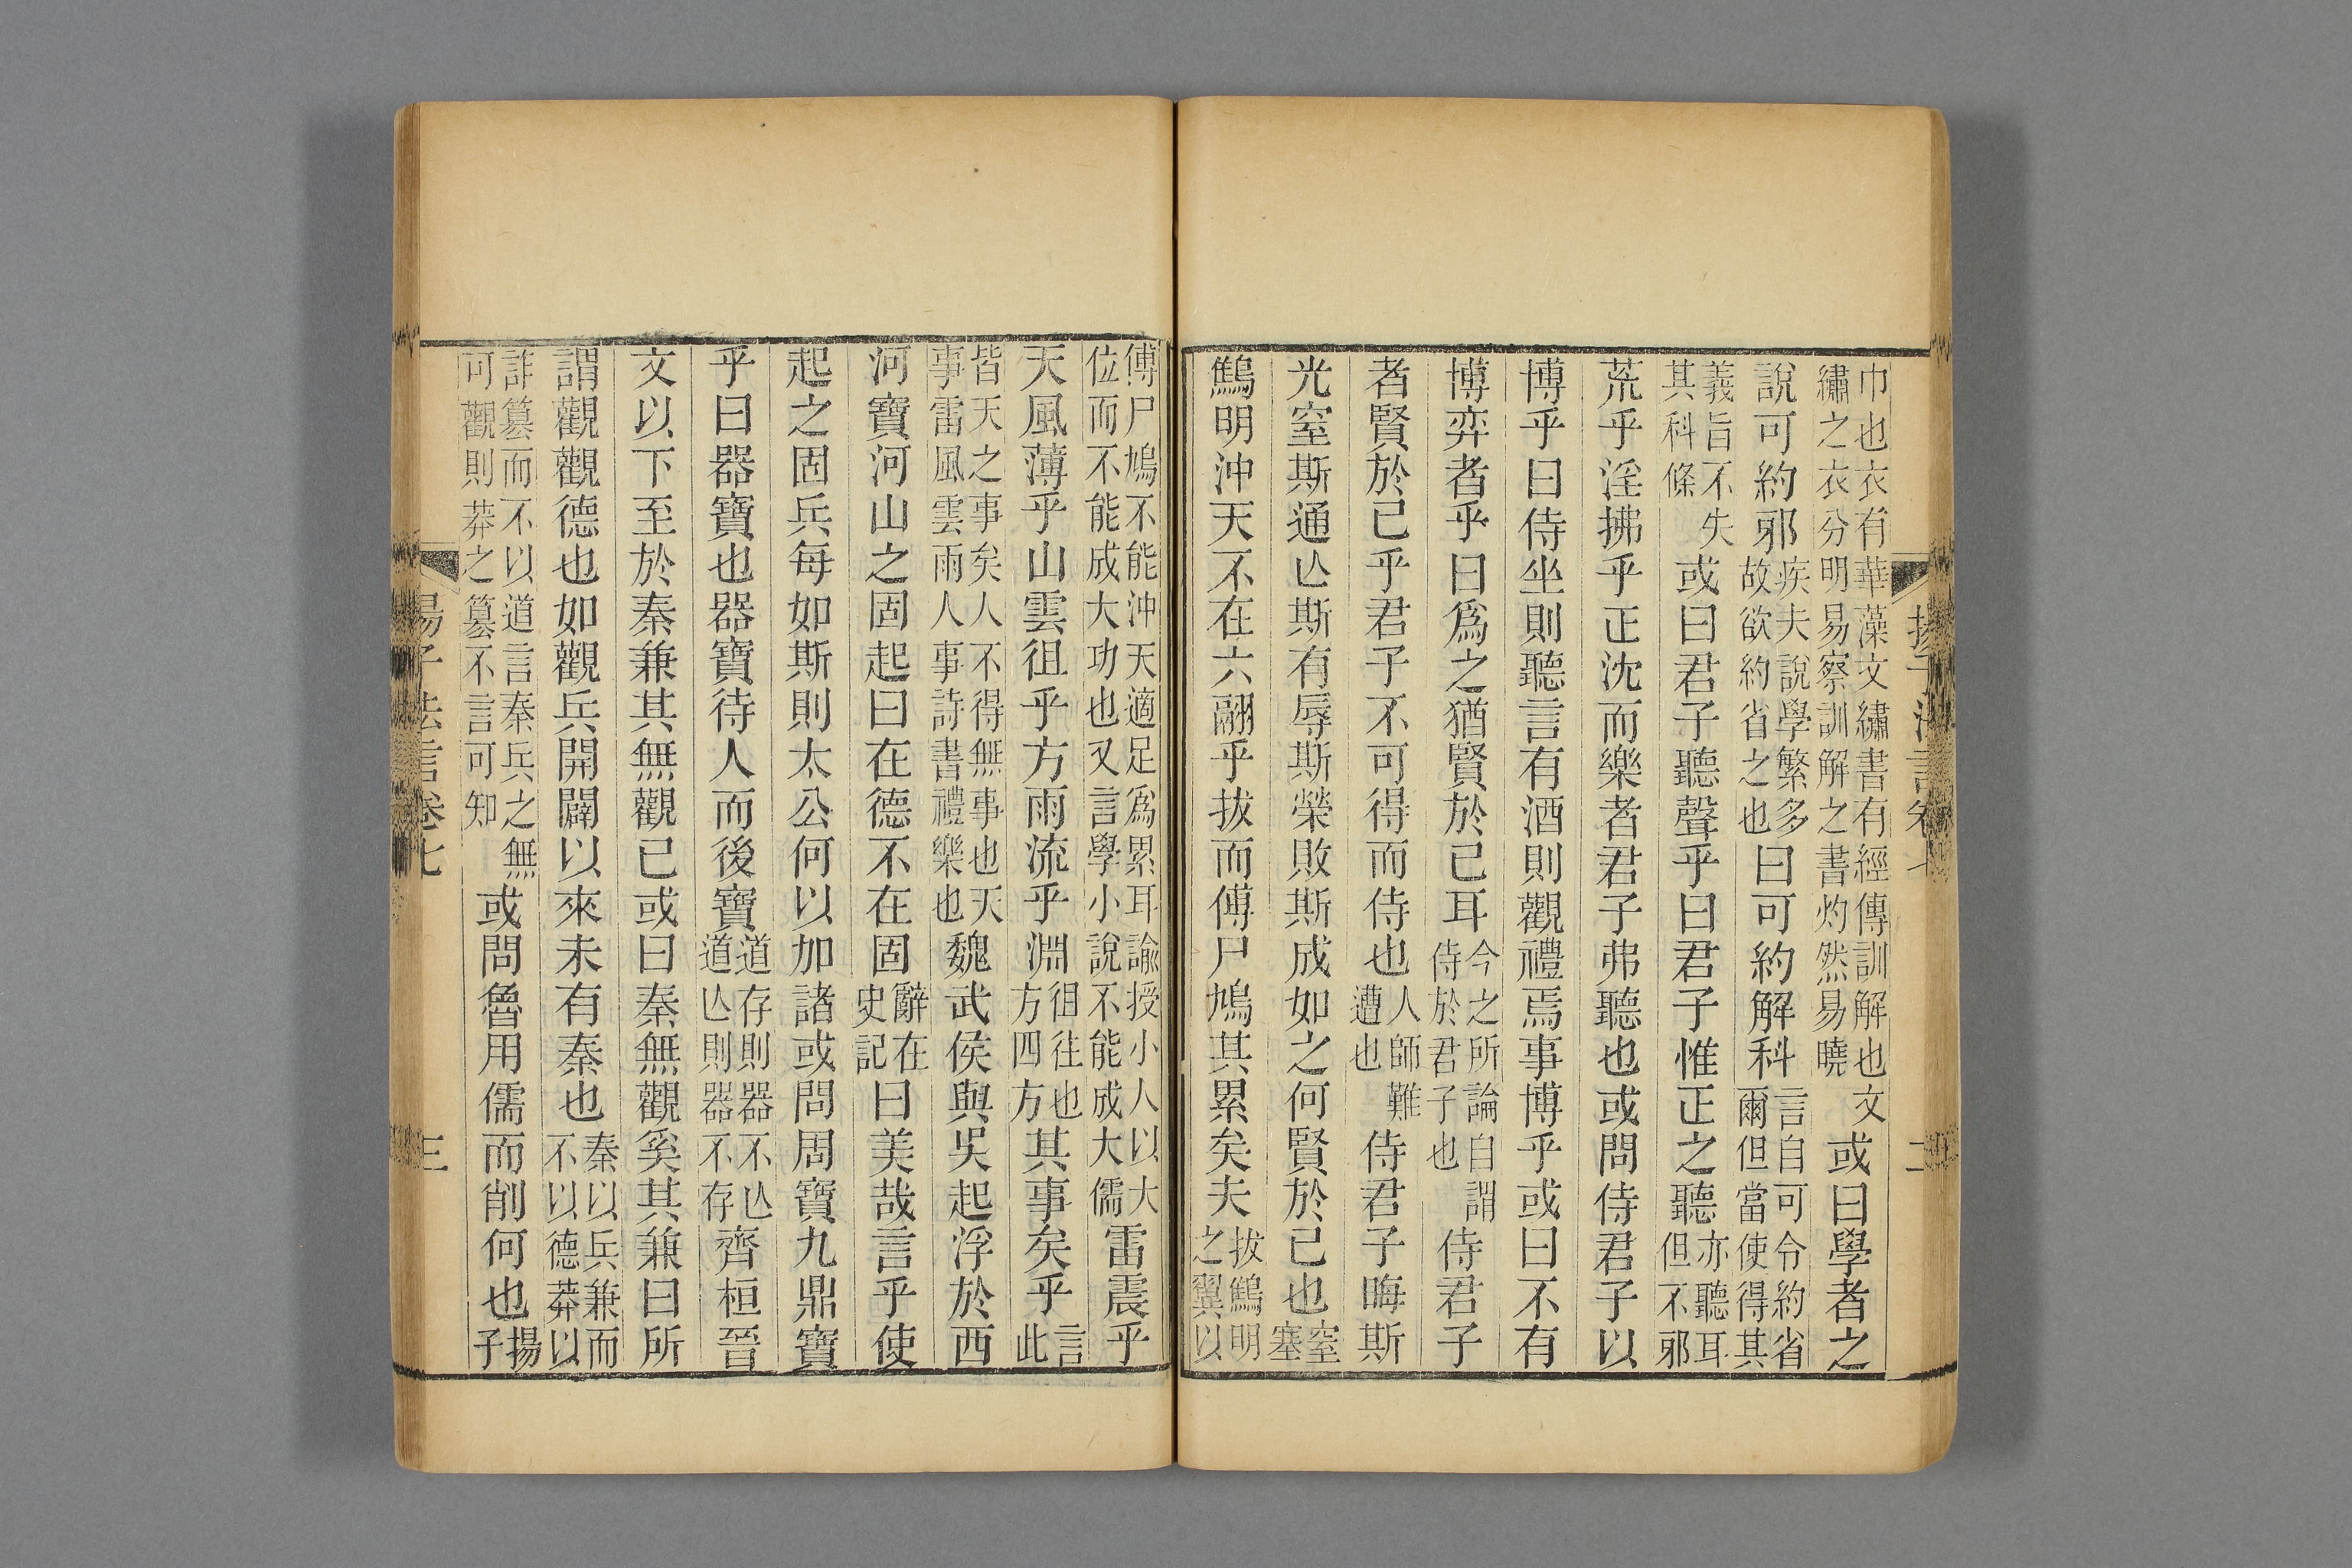 揚子法言卷七 二
巾也衣有華藻文繡書有經傳訓解也文
繡之衣分明易察訓解之書灼然易曉
或曰學者之
說可約邪
疾夫說學繁多
故欲約省之也
曰可約解科
言自可令約省
爾但當使得其
義旨不失
其科條
或曰君子聽聲乎曰君子惟正之聽
亦聽耳
但不邪
荒乎淫拂乎正沈而樂者君子弗聽也或問侍君子以
博乎曰侍坐則聽言有酒則觀禮焉事博乎或曰不有
博弈者乎曰爲之猶賢於已耳
今之所論自謂
侍於君子也
侍君子
者賢於已乎君子不可得而侍也
人師難
遭也
侍君子晦斯
光窒斯通亾斯有辱斯榮敗斯成如之何賢於已也
窒
塞
鷦明沖天不在六翮乎拔而傅尸鳩其累矣夫
拔鷦明
之翼以
傅尸鳩不能沖天適足爲累耳諭授小人以大
位而不能成大功也又言學小說不能成大儒
雷震乎
天風薄乎山雲徂乎方雨流乎淵
徂往也
方四方
其事矣乎
言
此
皆天之事矣人不得無事也天
事雷風雲雨人事詩書禮樂也
魏武侯與吳起浮於西
河寶河山之固起曰在德不在固
辭在
史記
曰美哉言乎使
起之固兵每如斯則太公何以加諸或問周寶九鼎寶
乎曰器寶也器寶待人而後寶
道存則器不亾
道亾則器不存
齊桓晉
文以下至於秦兼其無觀已或曰秦無觀奚其兼曰所
謂觀觀德也如觀兵開闢以來未有秦也
秦以兵兼而
不以德莽以
詐篡而不以道言秦兵之無
可觀則莽之篡不言可知
或問魯用儒而削何也
揚
子
揚子法言卷七 三